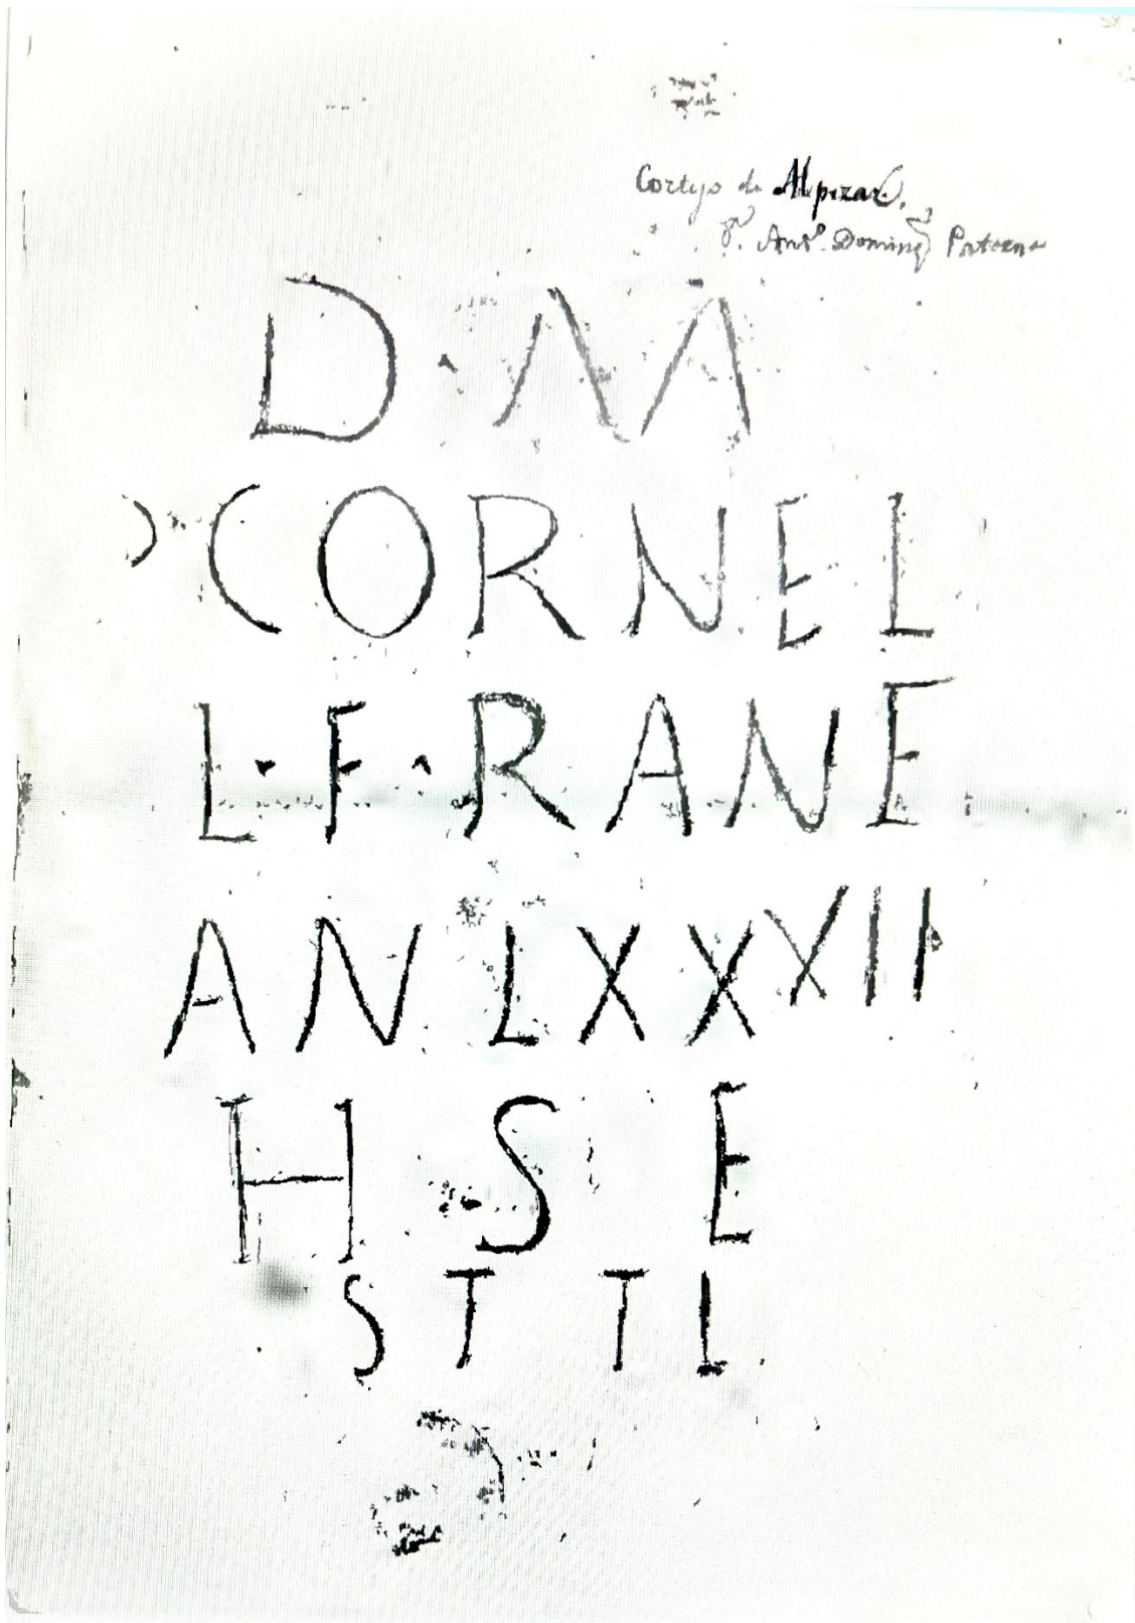 Cortijo de Alpizar.
Antº. Doming Paterna
D · M
CORNEL
L · F · RANE
AN LXXXII
H S E
S T T L